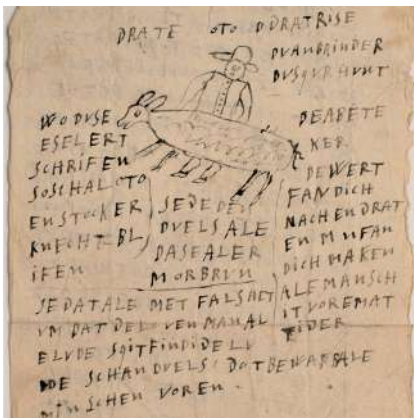 DRATE OTO DÜRATRISE
DVANBRINDER
DVSQVRHVNT
WODVSE
ESELERT
SCHRIFEN
SOSCHALOTO
ENSTOCKER
KNECHTBL
IFEN
SEDEDEN
DVELSALE
DASEALER
MORBRVN
DEABETE
KER
DEWERT
FANDICH
NACHENDRAT
EN MVFAN
DICH MAKEN
ALEMANSCH
ITVOREMAT
EIDER
SEDATALE MET FALSHET
VM DAT DEL VEN MANAL
ELVDE SGITFINDIDELV
DE SCHANDVELS DOTBEWARBALE
SCHEN VOREN.